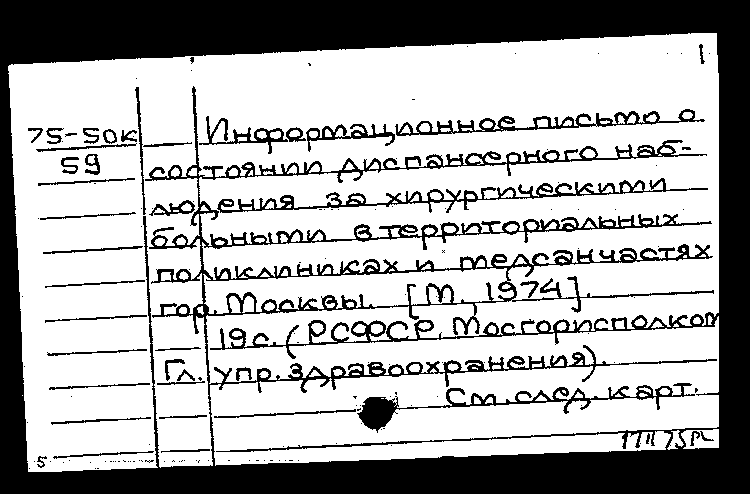 1
75-50к Информационное письмо о
59 состоянии диспансерного наб-
людения за хирургическими
больными в территориальных
поликлиниках и медсанчастях
гор. Москвы. [М., 1974].
19 с. (РСФСР. Мосгорисполком
Гл. упр. здравоохранения).
См. след. карт.
5